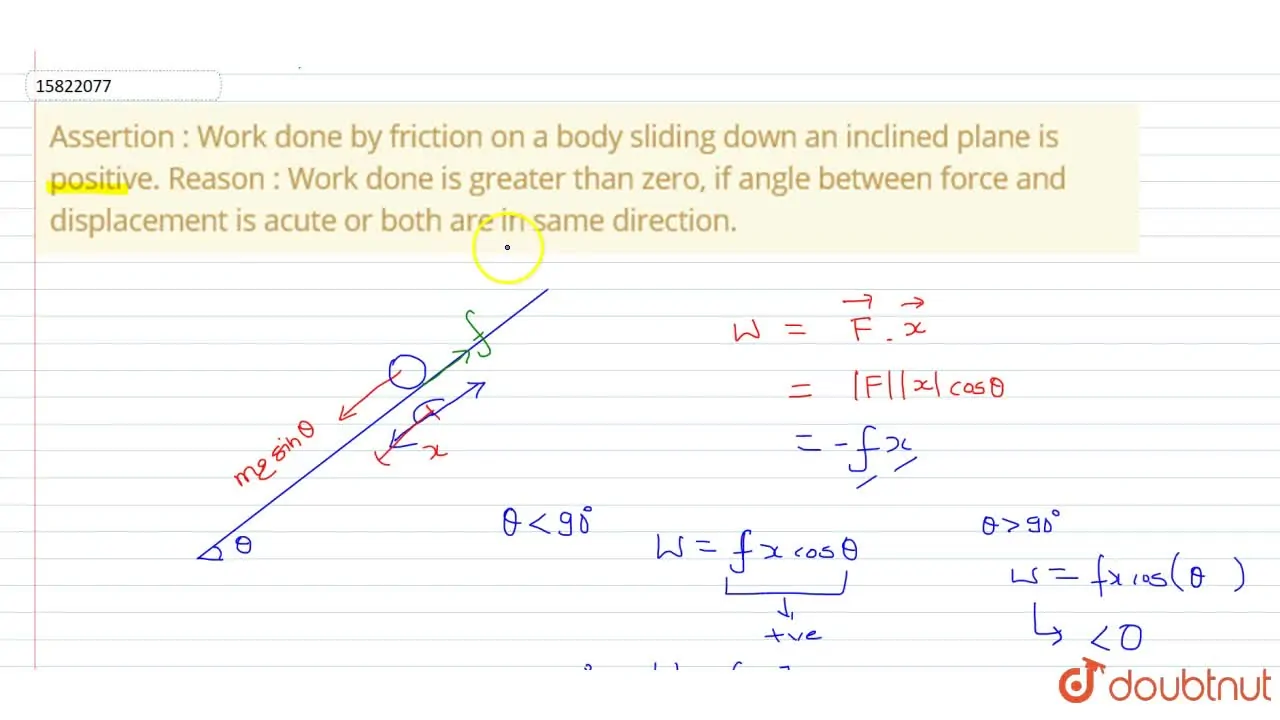 15822077
Assertion : Work done by friction on a body sliding down an inclined plane is
positive. Reason : Work done is greater than zero, if angle between force and
displacement is acute or both are in same direction.
f
mg sinθ
x
θ
W = F⃗ . x⃗
= |F||x| cosθ
= -fx
θ < 90°
W = fx cosθ
+ve
θ > 90°
W = fx cos(θ )
< 0
doubtnut